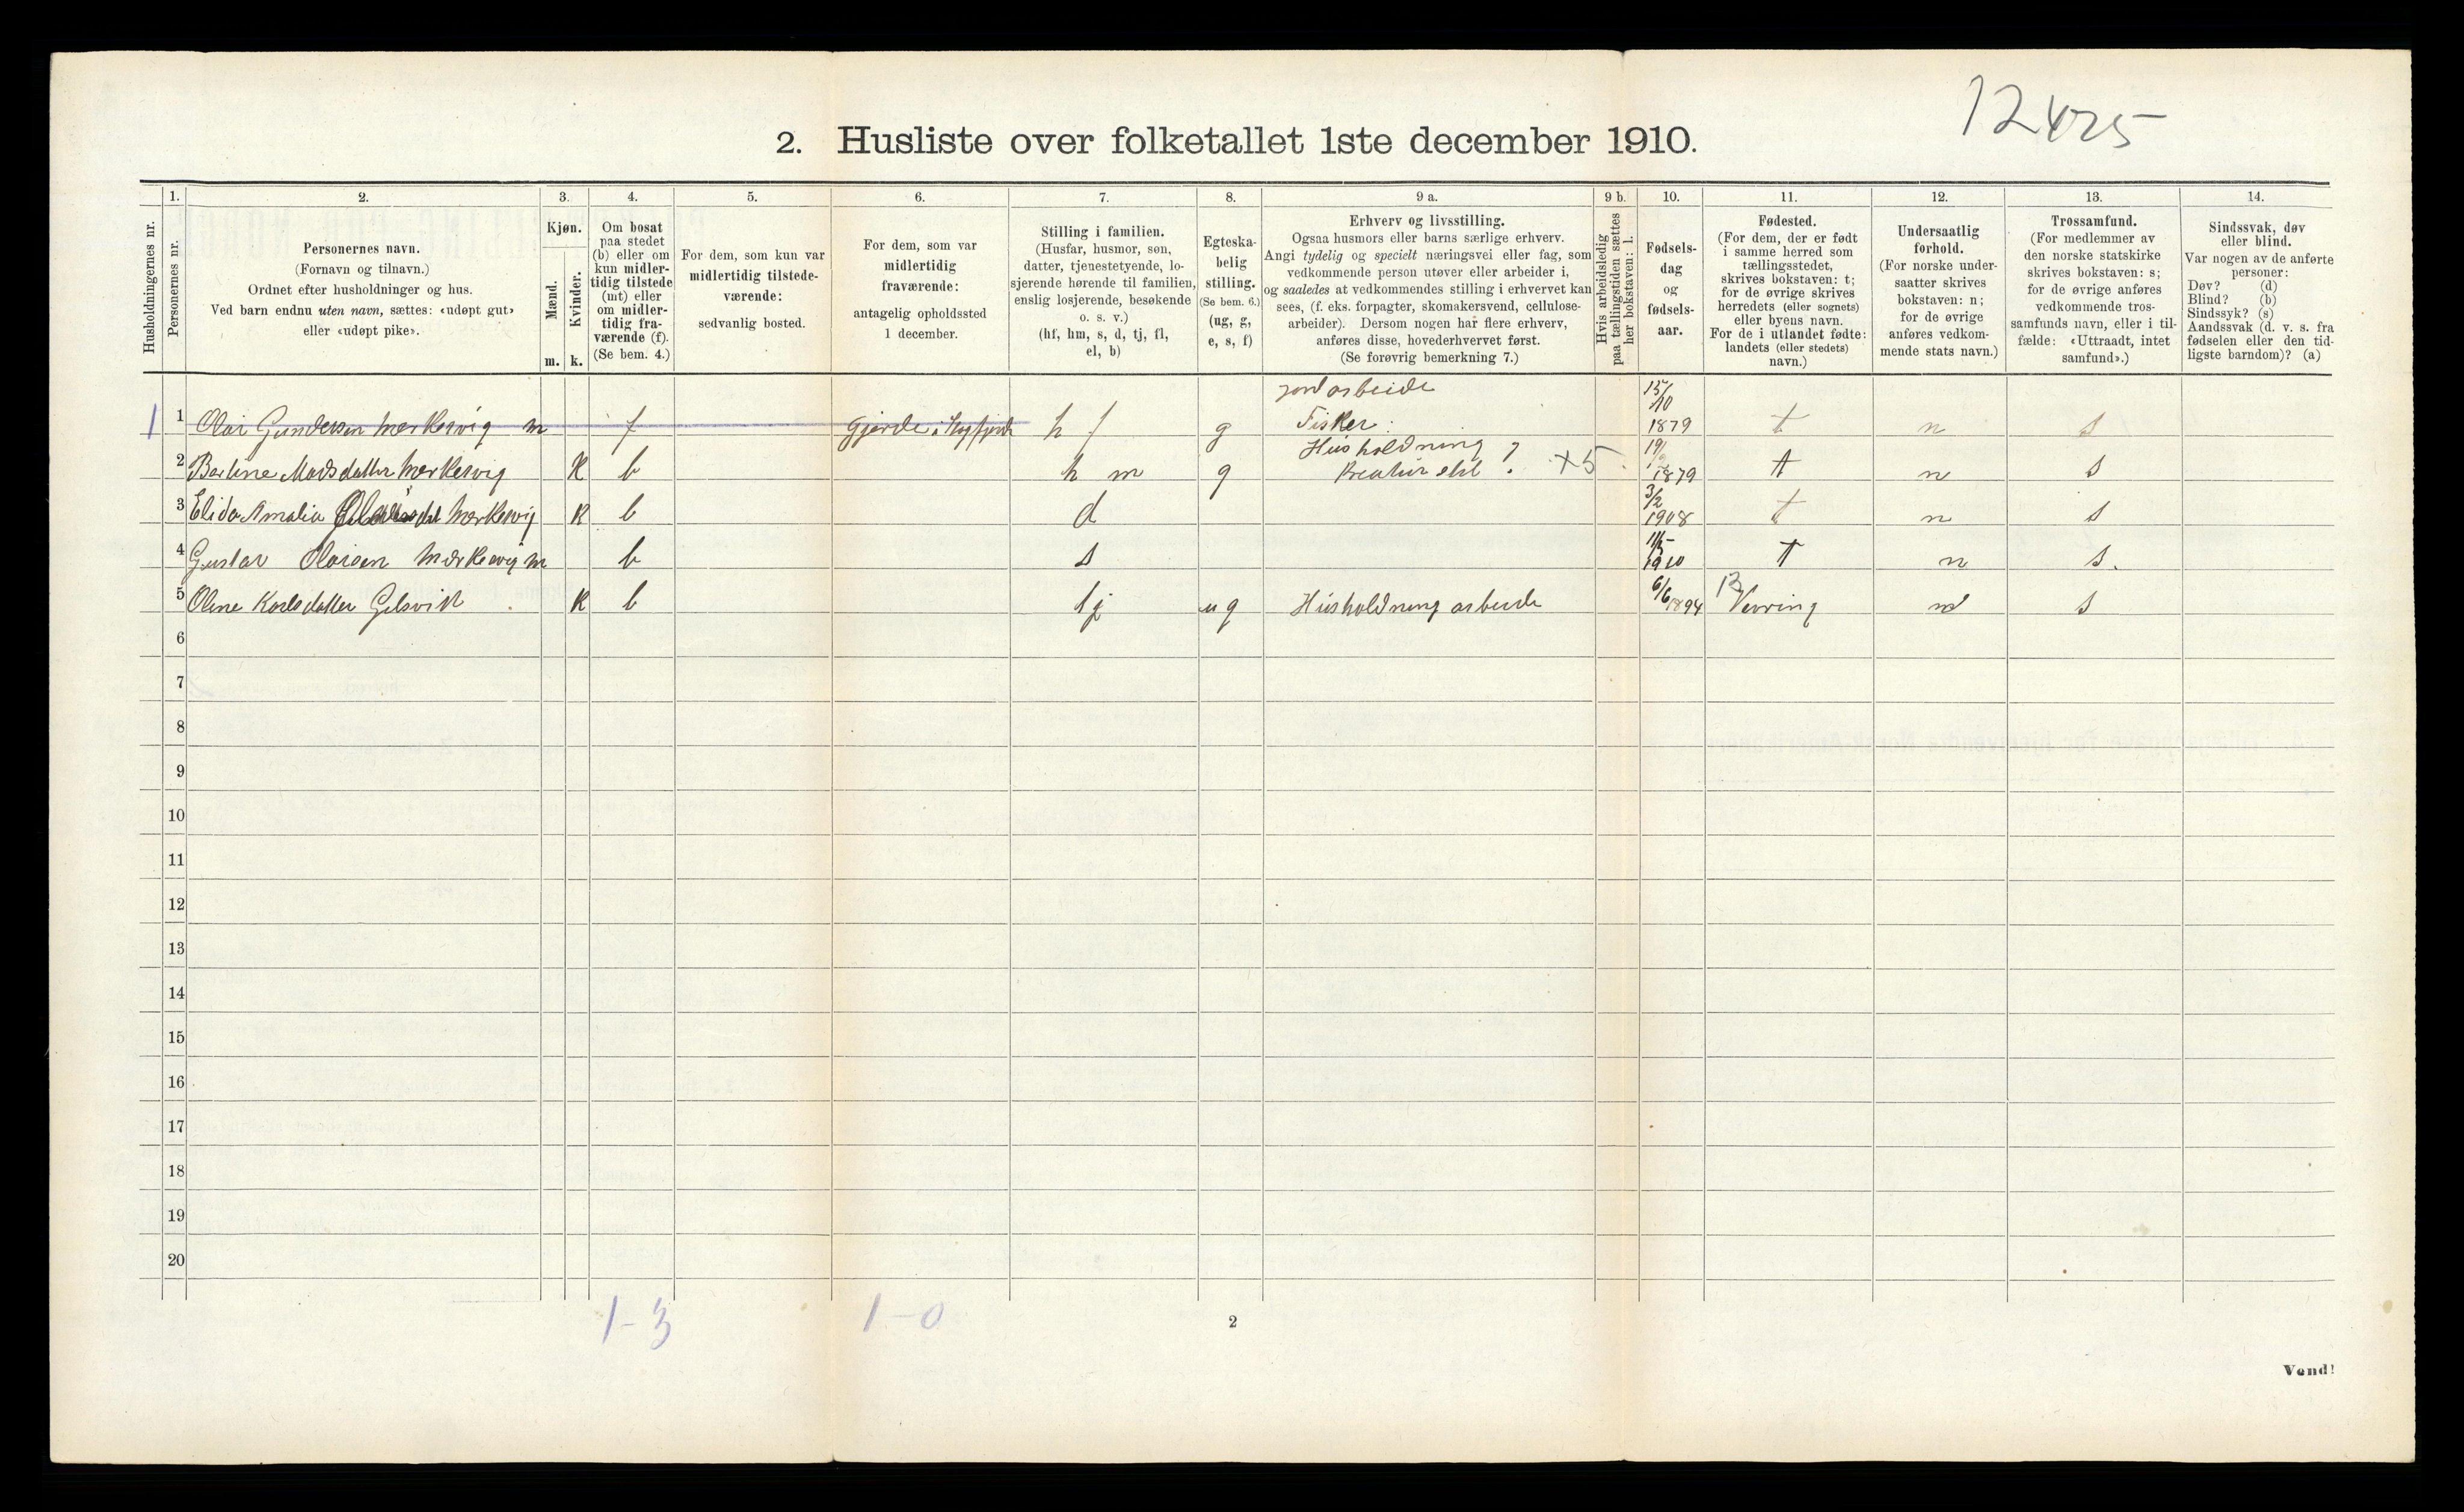 12425
2. Husliste over folketallet 1ste december 1910.
Husholdningernes nr.
1.
Personernes nr.
2.
Personernes navn.
(Fornavn og tilnavn.)
Ordnet efter husholdninger og hus.
Ved barn endnu uten navn, sættes: «udøpt gut»
eller «udøpt pike».
3.
Kjøn.
Mænd.
m.
Kvinder.
k.
4.
Om bosat
paa stedet
(b) eller om
kun midler-
tidig tilstede
(mt) eller
om midler-
tidig fra-
værende (f).
(Se bem. 4.)
5.
For dem, som kun var
midlertidig tilstede-
værende:
sedvanlig bosted.
6.
For dem, som var
midlertidig
fraværende:
antagelig opholdssted
1 december.
7.
Stilling i familien.
(Husfar, husmor, søn,
datter, tjenestetyende, lo-
sjerende hørende til familien,
enslig losjerende, besøkende
o. s. v.)
(hf, hm, s, d, tj, fl,
el, b)
8.
Egteska-
belig
stilling.
(Se bem. 6.)
(ug, g,
e, s, f)
9 a.
Erhverv og livsstilling.
Ogsaa husmors eller barns særlige erhverv.
Angi tydelig og specielt næringsvei eller fag, som
vedkommende person utøver eller arbeider i,
og saaledes at vedkommendes stilling i erhvervet kan
sees, (f. eks. forpagter, skomakersvend, cellulose-
arbeider). Dersom nogen har flere erhverv,
anføres disse, hovederhvervet først.
(Se forøvrig bemerkning 7.)
9 b.
Hvis arbeidsledig
paa tællingstiden sættes
her bokstaven: l.
10.
Fødsels-
dag
og
fødsels-
aar.
11.
Fødested.
(For dem, der er født
i samme herred som
tællingsstedet,
skrives bokstaven: t;
for de øvrige skrives
herredets (eller sognets)
eller byens navn.
For de i utlandet fødte:
landets (eller stedets)
navn.)
12.
Undersaatlig
forhold.
(For norske under-
saatter skrives
bokstaven: n;
for de øvrige
anføres vedkom-
mende stats navn.)
13.
Trossamfund.
(For medlemmer av
den norske statskirke
skrives bokstaven: s;
for de øvrige anføres
vedkommende tros-
samfunds navn, eller i til-
fælde: «Uttraadt, intet
samfund».)
14.
Sindssvak, døv
eller blind.
Var nogen av de anførte
personer:
Døv? (d)
Blind? (b)
Sindssyk? (s)
Aandssvak (d. v. s. fra
fødselen eller den tid-
ligste barndom)? (a)
jordarbeide 15/10
1 1 Olai Gundersen Merkesvig m f Gjerde i h f g Fisker 1879 t n s
Husholdning 19/
2 Berline Madsdatter Merkesvig K b h m g Kreatur stel +5 1879 t n s
3 Elida Amalia Merkesvig K b d 3/2 1908 t n s
4 Gustav Olaisen Merkesvig m b s 11/5 1910 t n s.
5 Oline Karlsdatter Gilsvik K b tj ug Husholdning arbeide 6/6 1894 Vevring n s
6
7
8
9
10
11
12
13
14
15
16
17
18
19
20
1-3 1-0
2
Vend!